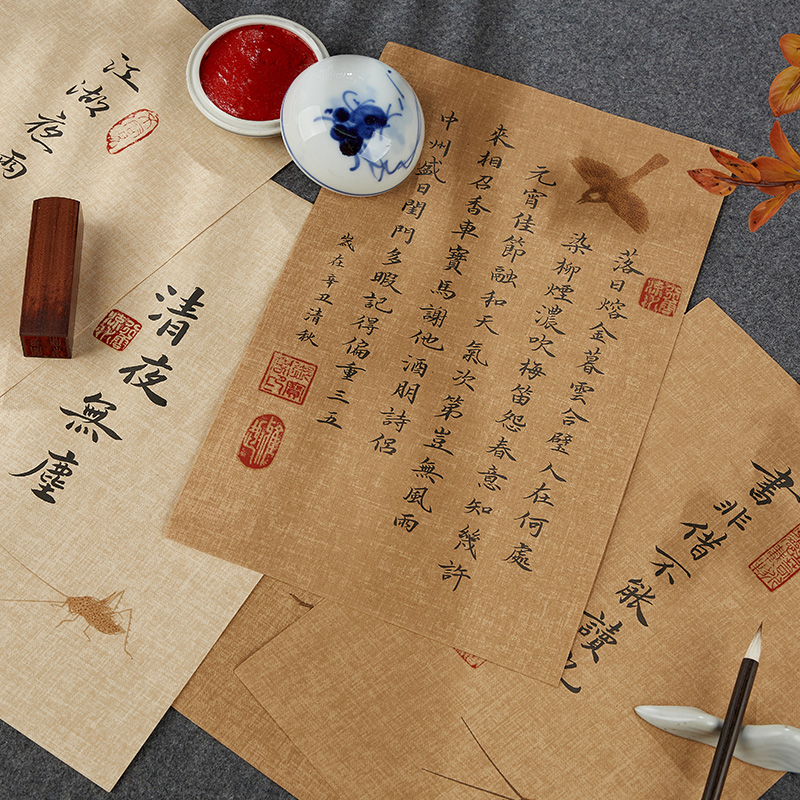 書非借不能讀
落日熔金暮雲合璧人在何處
染柳煙濃吹梅笛怨春意知幾許
元宵佳節融和天氣次第豈無風雨
來相召香車寶馬謝他酒朋詩侶
中州盛日閨門多暇記得偏重三五
歲在辛丑清秋
清夜無塵
江湖夜雨